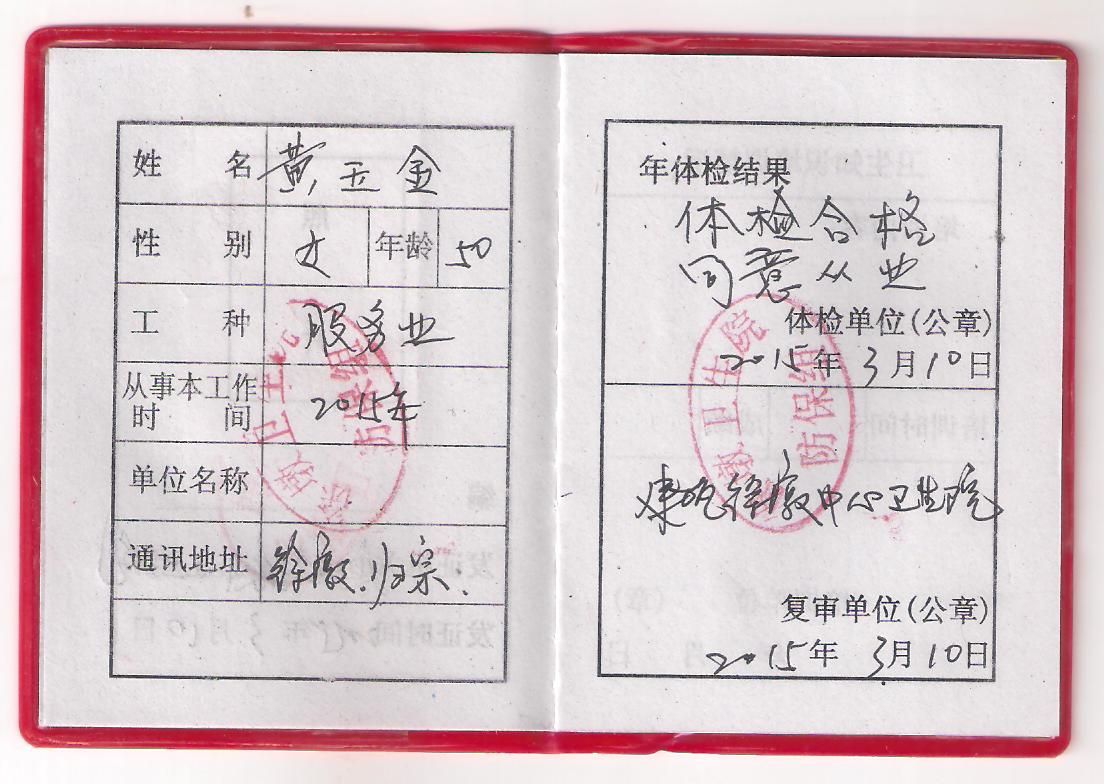 姓 名 黄玉金
性 别 女 年龄 50
工 种 服务业
从事本工作时 间 2015年
单位名称
通讯地址 徐墩.归宗.
年体检结果
体检合格
同意从业
体检单位(公章)
2015年3月10日
徐墩中心卫生院
卫生院
防保组
复审单位(公章)
2015年3月10日